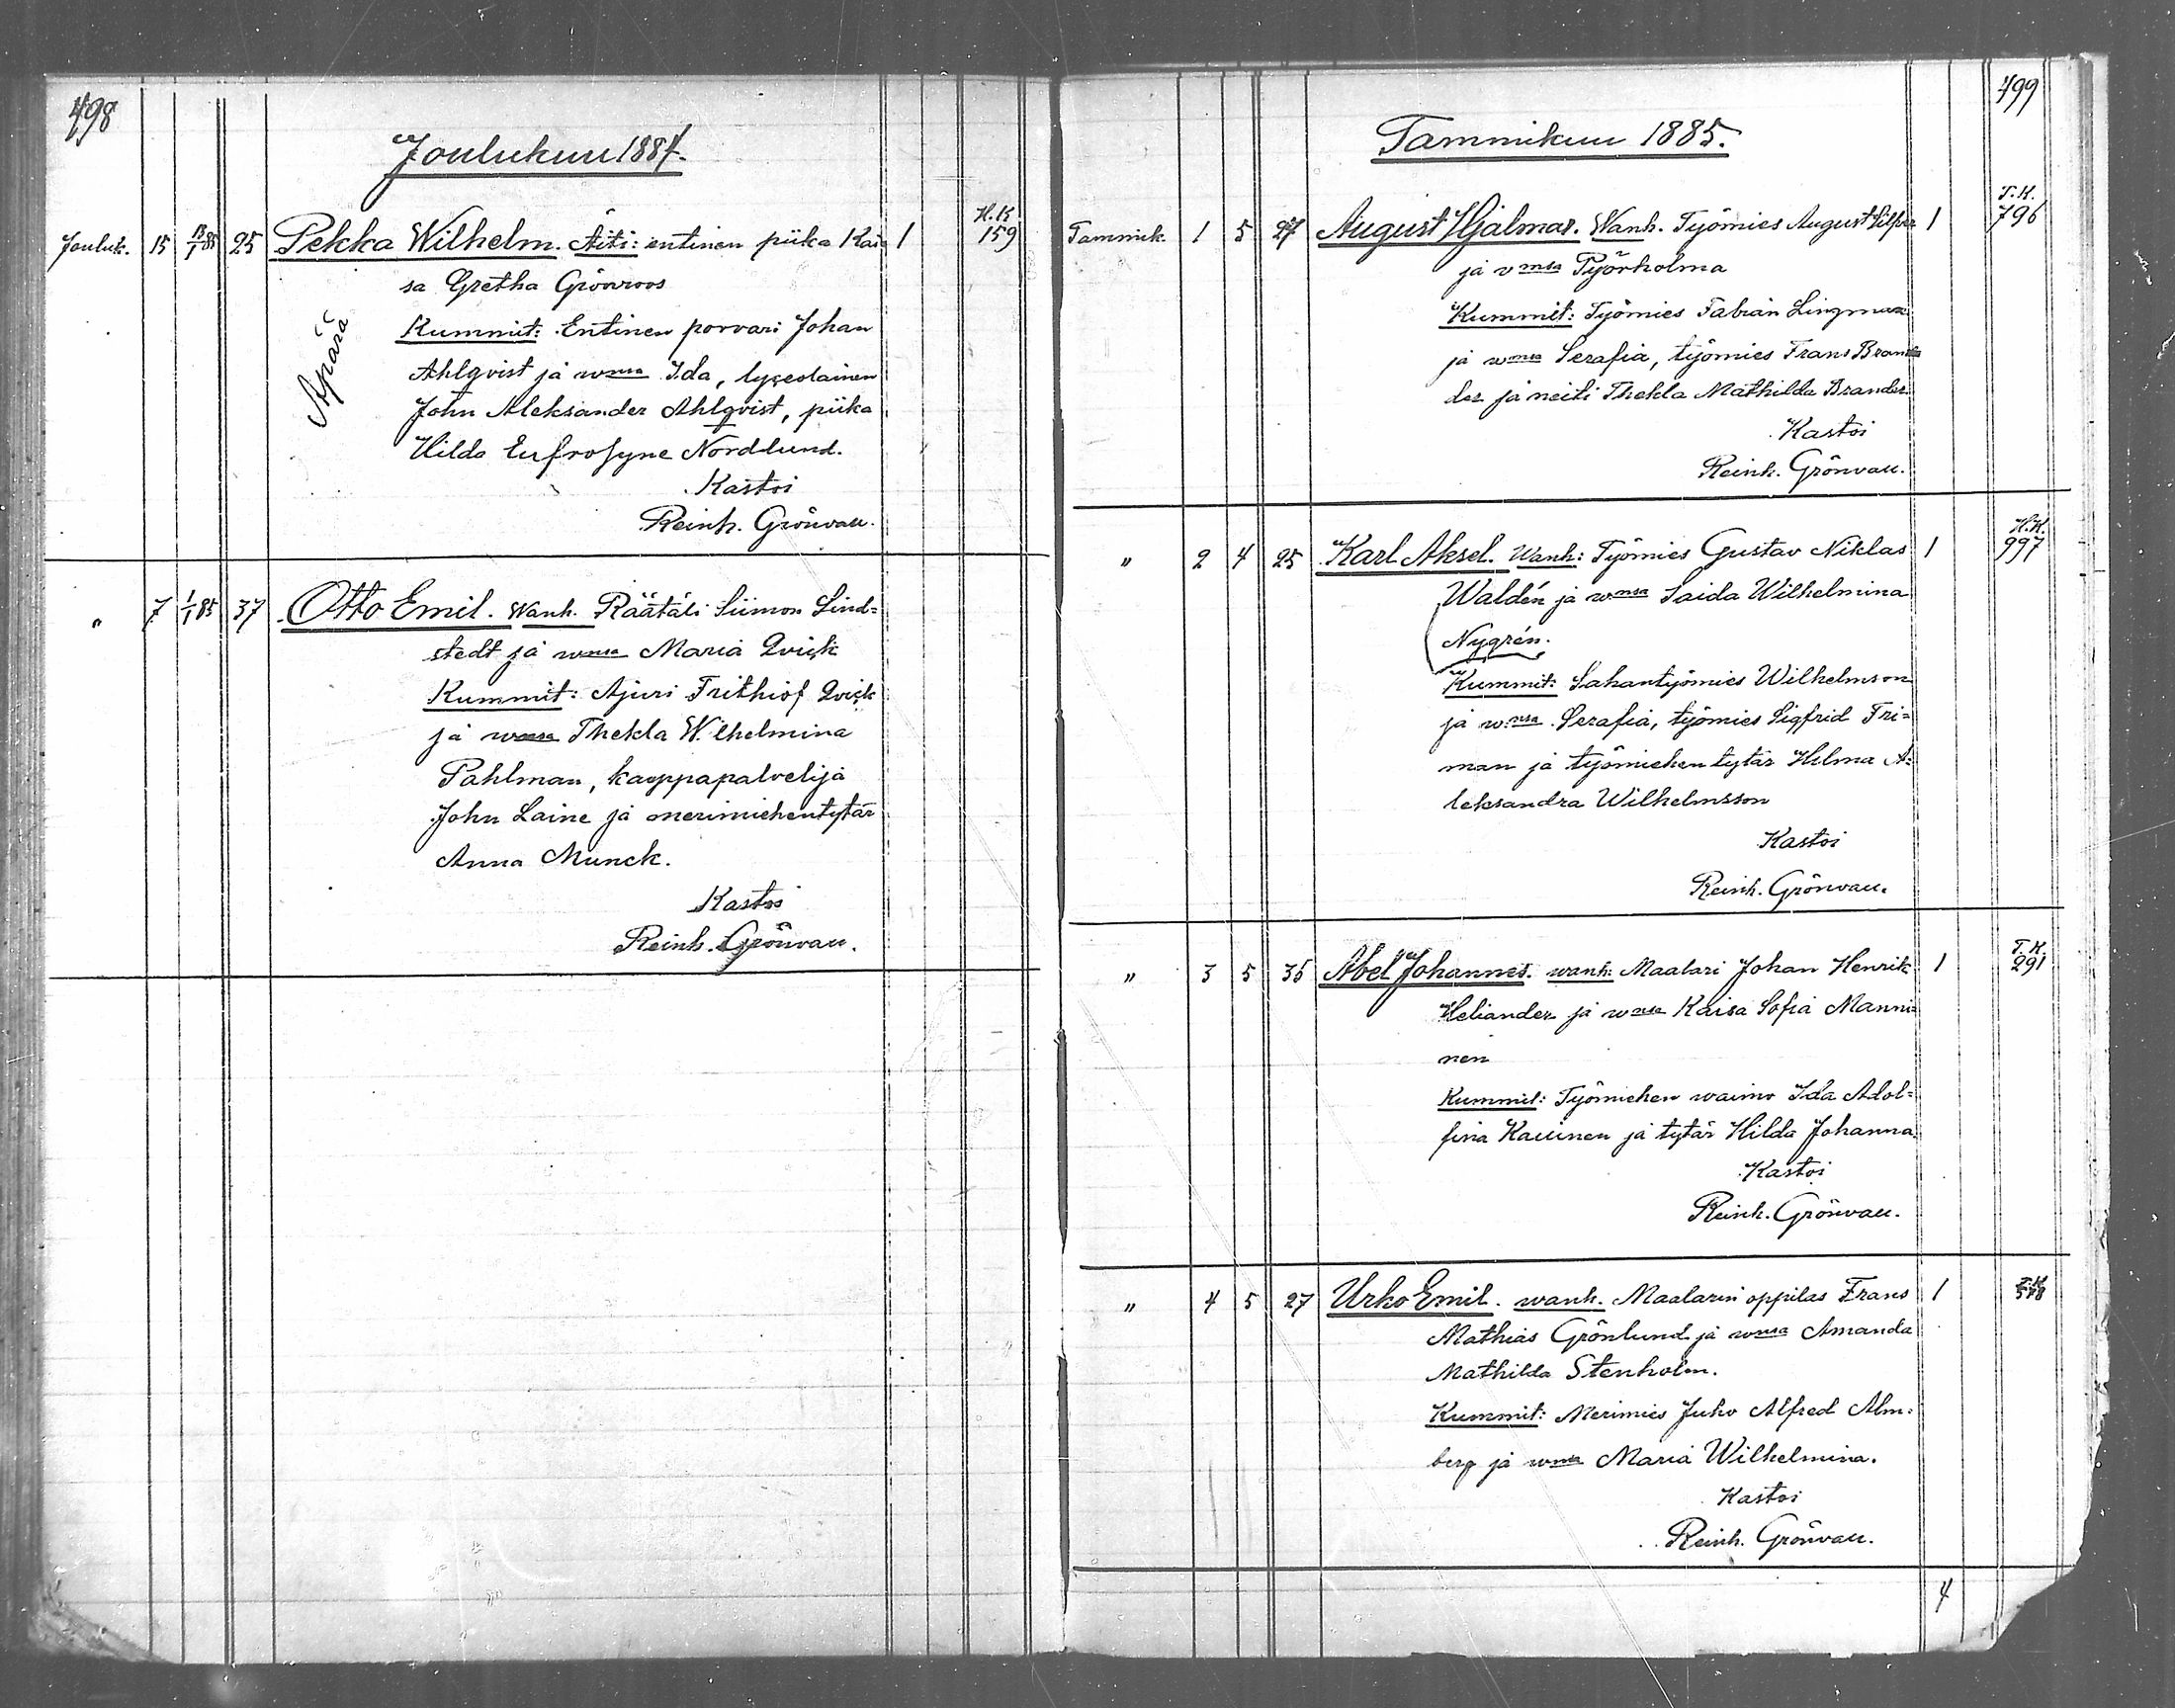 498
Joulukuu 1884.
Jouluk. 15 13/1 85 25 Pekka Wilhelm. Äiti: entinen piika Kai= 1 H.K. 159
sa Gretha Grönroos
Äpärä
Kummit: Entinen porvari Johan
Ahlqvist ja wmsa Ida, lyseolainen
John Aleksander Ahlqvist, piika
Hilda Eufrosyne Nordlund.
Kastoi
Reinh. Grönvall.
" 7 1/1 85 37 Otto Emil. Wanh. Räätäli Siimon Lind=
stedt ja wmsa Maria Qvick
Kummit: Ajuri Frithiof Qvick
ja wmsa Thekla Wilhelmina
Pahlman, kauppapalvelija
John Laine ja merimiehentytär
Anna Munck.
Kastoi
Reinh. Grönvall.
499
Tammikuu 1885.
Tammik. 1 5 27 August Hjalmar. Wanh. Työmies August Silfver 1 T.K. 796
ja vmsa Pyörholma
Kummit: Työmies Fabian Lingman
ja wmsa Serafia, työmies Frans Bran
der ja neiti Thekla Mathilda Brander.
Kastoi
Reinh. Grönvall.
" 2 4 25 Karl Aksel. Wanh: Työmies Gustav Niklas 1 H.K. 997
Waldén ja wmsa Saida Wilhelmina
Nygrén.
Kummit: Sahantyömies Wilhelmson
ja wmsa Serafia, työmies Sigfrid Fri=
man ja työmiehen tytär Hilma A=
leksandra Wilhelmsson
Kastoi
Reinh. Grönvall.
" 3 5 35 Abel Johannes. wanh: Maalari Johan Henrik 1 T.K. 291
Heliander ja wmsa Kaisa Sofia Manni=
nen
Kummit: Työmiehen waimo Ida Adol=
fina Kauinen ja tytär Hilda Johanna.
Kastoi
Reinh. Grönvall.
" 4 5 27 Urko Emil. wanh. Maalarin oppilas Frans 1
Mathias Grönlund ja wmsa Amanda
Mathilda Stenholm.
Kummit: Merimies Juho Alfred Alm=
berg ja wmsa Maria Wilhelmina.
Kastoi
Reinh. Grönvall.
4